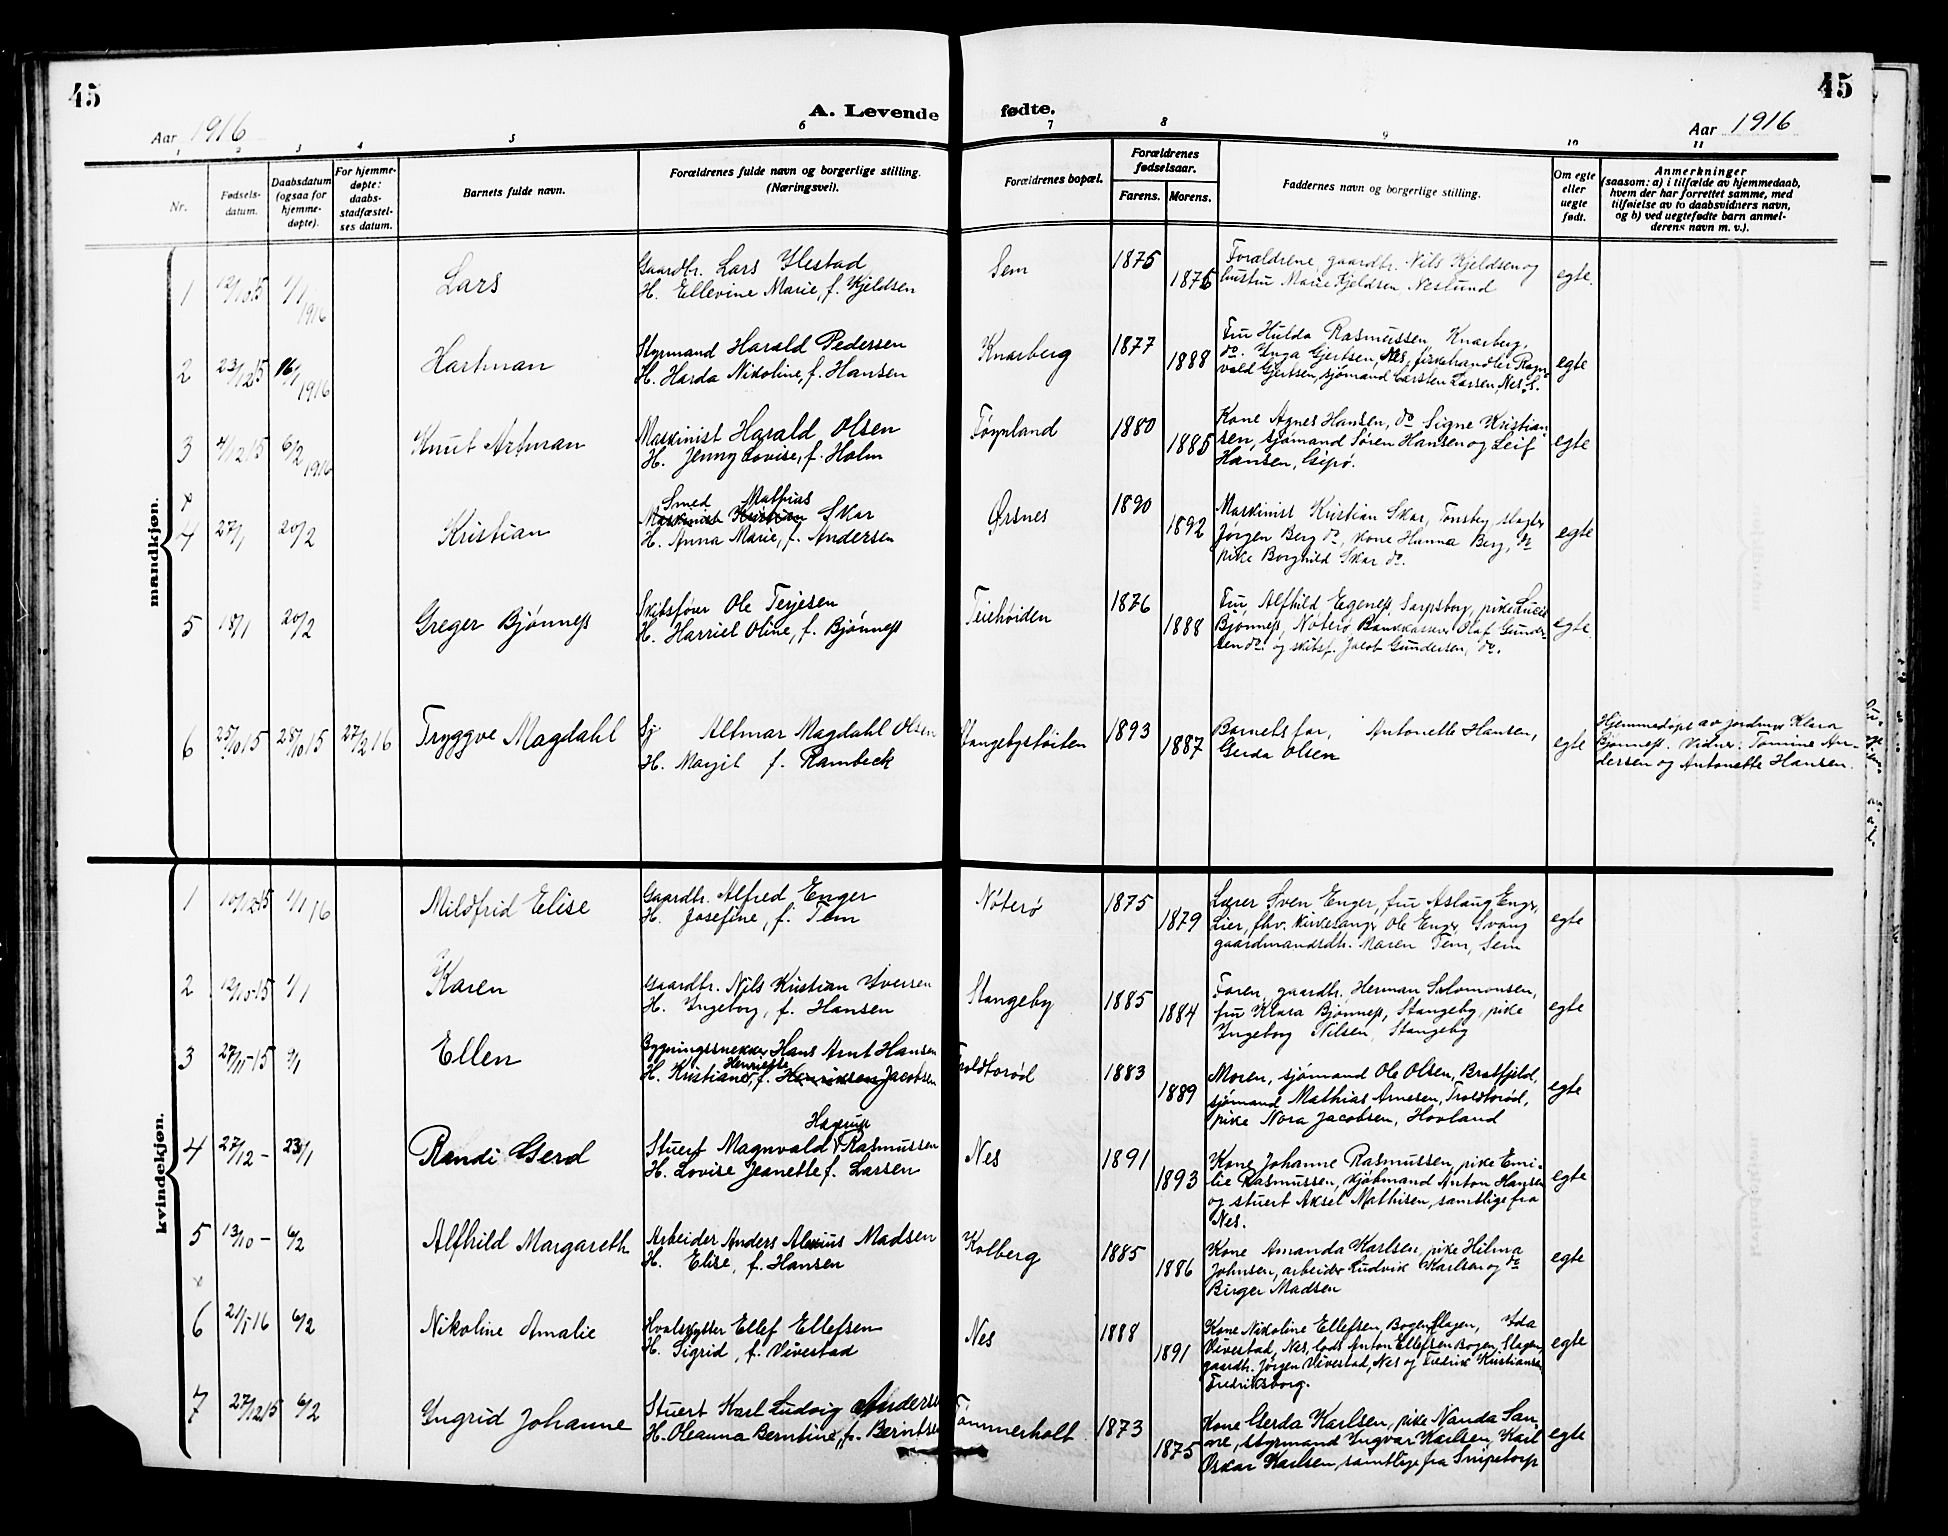 45
45
A. Levende fødte.
Aar 1916
Aar 1916
1 2 3 4 5 6 7 8 9 10 11
Nr.
Fødsels-
datum.
Daabsdatum
(ogsaa for
hjemme-
døpte).
For hjemme-
døpte:
daabs-
stadfæstel-
ses datum.
Barnets fulde navn.
Forældrenes fulde navn og borgerlige stilling.
(Næringsvei).
Forældrenes bopæl.
Forældrenes
fødselsaar.
Farens. Morens.
Faddernes navn og borgerlige stilling.
Om egte
eller
uegte
født.
Anmerkninger
(saasom: a) i tilfælde av hjemmedaab,
hvem der har forrettet samme, med
tilføielse av to daabsvidners navn,
og b) ved uegtefødte barn anmel-
derens navn m. v.).
mandkjøn.
1 12/10 15 1/1 1916 Lars
Gaardbr. Lars Ilestad
H. Ellevine Marie, f. Kjeldsen
Sem 1875 1876
Forældrene, gaardbr. Nils Kjeldsen og
hustru Marie Kjeldsen, Neslund
egte.
2 23/12 15 16/1 1916 Hartman
Styrmand Harald Pedersen
H. Harda Nikoline, f. Hansen
Knarberg 1877 1888
Fru Hulda Rasmussen, Knarberg,
do. Inga Gjertsen, Nes, fiskehandler Ragn-
vald Gjertsen, sjømand Carsten Larsen, Nes S.
egte
3 4/12 15 6/2 1916 Knut Artman
Maskinist Harald Olsen
H. Jenny Lovise, f. Holm
Føynland 1880 1885
Kone Agnes Hansen, do Signe Kristian-
sen, sjømand Søren Hansen og Leif
Hansen, Gipø.
egte
x
4 27/1 20/2 Kristian
Smed Mathias
Maskinist Kristian Skar
H. Anna Marie, f. Andersen
Ørsnes 1890 1892
Maskinist Kristian Skar, Tønsberg slagter
Jørgen Berg do, kone Hanna Berg, do
pike Borghild Skar do.
egte
5 18/1 20/2 Greger Bjønness
Skibsfører Ole Terjesen
H. Harriet Oline, f. Bjønness
Teiehøiden 1876 1888
Fru Alfhild Egeness, Sarpsborg, pike Lucie
Bjønness, Nøterø Bankkasserer Olaf Gunder-
sen do. og skibsf. Jacob Gundersen, do.
egte.
6 25/10 15 28/10 15 27/2 16 Tryggve Magdahl
Sj Altmar Magdahl Olsen
H. Margit f. Rambeck
Stangebytøiten 1893 1887
Barnets far, Antonette Hansen,
Gerda Olsen
egte
Hjemmedøpt av jordmor Klara
Bjønness. Vidner: Tomine An-
dersen og Antonette Hansen.
kvindekjøn.
1 10/12 15 1/1 16 Mildfrid Elise
Gaardbr. Alfred Enger
H. Josefine, f. Tem
Nøterø 1875 1879
Lærer Sven Enger, fru Aslaug Enger,
Lier, fhv. kirkesanger Ole Enger, Svang
gaardmandsdtr. Maren Tem, Sem
egte
2 12/10-15 1/1 Karen
Gaardbr. Nils Kristian Iversen
H. Ingeborg, f. Hansen
Stangeby 1885 1884
Faren, gaardbr. Herman Salomonsen,
fru Klara Bjønness, Stangeby, pike
Ingeborg Nilsen, Stangeby
egte
3 27/11-15 9/1 Ellen
Bygningssnekker Hans Arnt Hansen
Henriette
H. Kristiane, f. Henriksen Jacobsen
Troldtorød 1883 1889
Moren, sjømand Ole Olsen, Bratfjeld,
sjømand Mathias Arnesen, Troldtorød,
pike Nora Jacobsen, Hovland
egte
4 27/12 - 23/1 Randi Gerd
Hagerup
Stuert Magnvald Rasmussen
H. Lovise Jeanette f. Larsen
Nes 1891 1893
Kone Johanne Rasmussen, pike Emi-
lie Rasmussen, kjøbmand Anton Hansen
og stuert Aksel Mathisen, samtlige fra
Nes.
egte
5 13/10 - 6/2 Alfhild Margareth
Arbeider Anders Alexius Madsen
H. Elise, f. Hansen
Kolberg 1885 1886
Kone Amanda Karlsen, pike Hilma
Johnsen, arbeider Ludvik Karlsen og do
Birger Madsen
egte
x
6 21/1 16 6/2 Nikoline Amalie
Hvalskytter Ellef Ellefsen
H. Sigrid, f. Vivestad
Nes 1888 1891
Kone Nikoline Ellefsen, Bogen, Slagen, Ida
Vivestad, Nes, lods Anton Ellefsen Bogen, Slagen,
gaardbr. Jørgen Vivestad, Nes og Fredrik Kristiansen
Fredriksborg.
egte
7 27/12 15 6/2 Ingrid Johanne
Stuert Karl Ludvig Anders
H. Oleanna Berntine, f. Berntsen
Tømmerholt 1873 1875
Kone Gerda Karlsen, pike Nanda San-
ne, styrmand Ingvar Karlsen, Karl
Oskar Karlsen, samtlige fra Snipetorp
egte